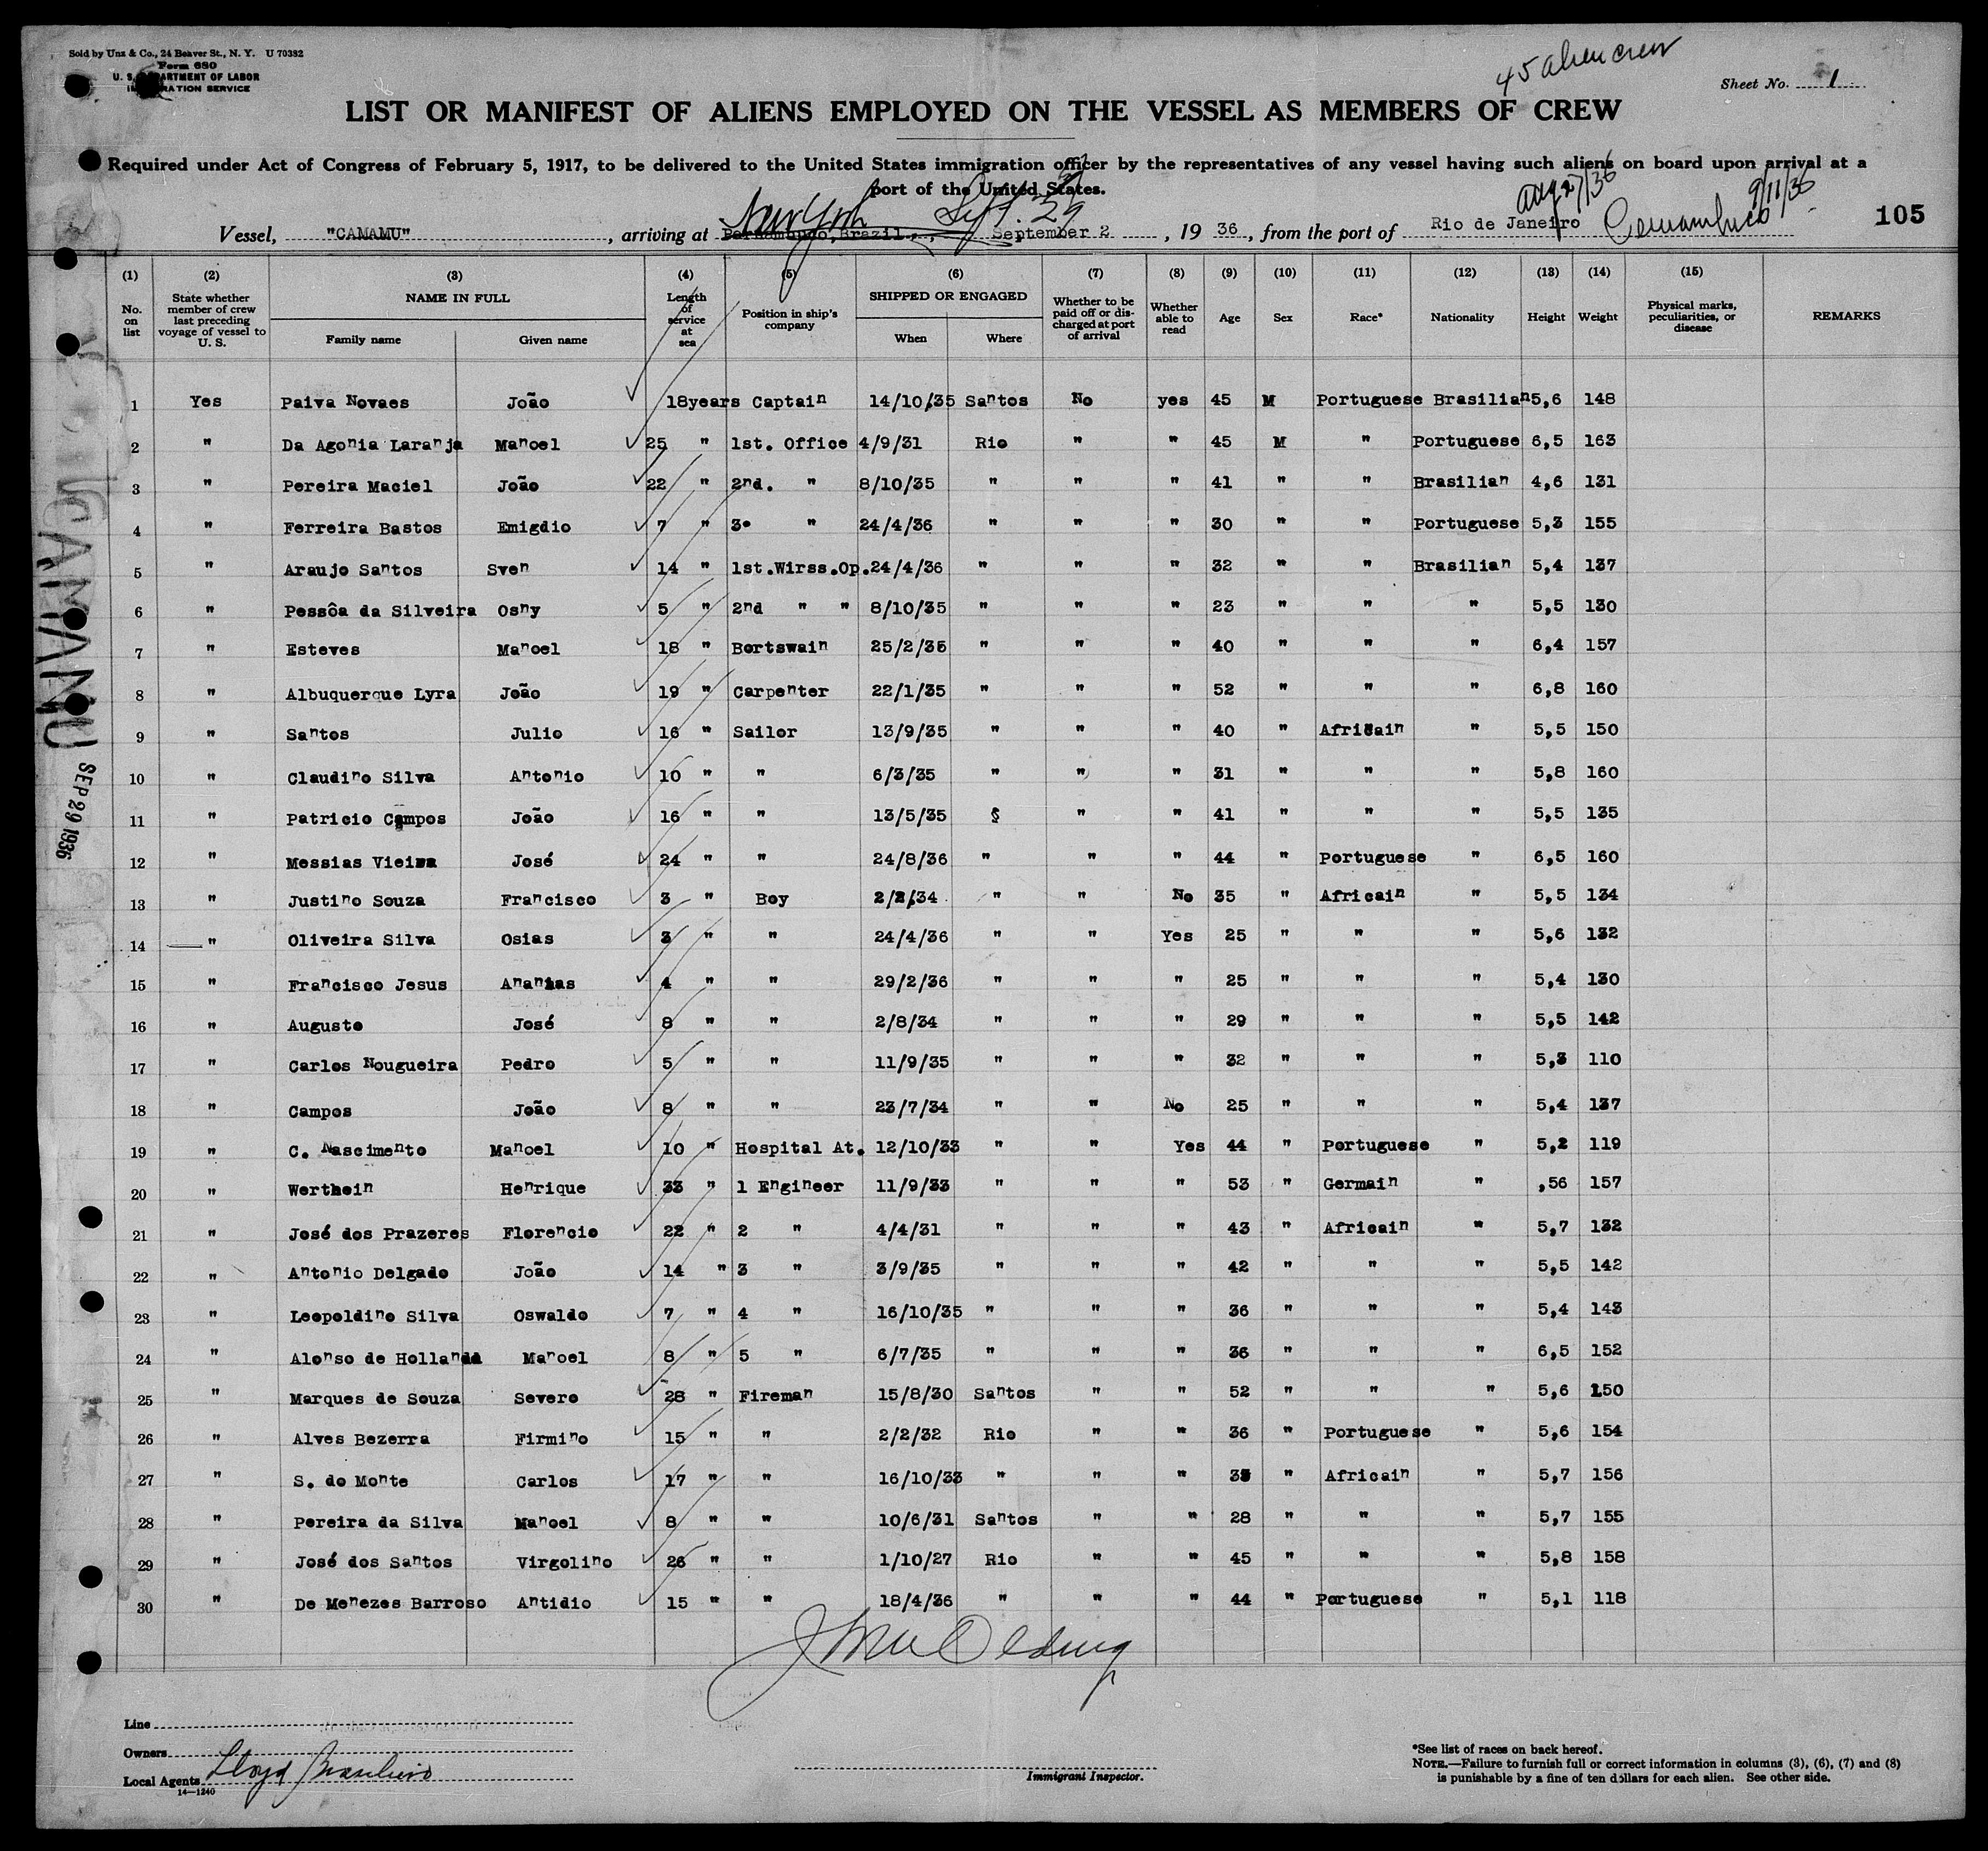 Sold by Unz & Co., 24 Beaver St., N. Y. U 70382
Form 680
U. S. DEPARTMENT OF LABOR
IMMIGRATION SERVICE
45 alien crew
Sheet No. 1
LIST OR MANIFEST OF ALIENS EMPLOYED ON THE VESSEL AS MEMBERS OF CREW
Required under Act of Congress of February 5, 1917, to be delivered to the United States immigration officer by the representatives of any vessel having such aliens on board upon arrival at a
port of the United States.
New York Sept. 29 Aug 27/36 Pernambuco 9/11/36
Vessel, "CAMAMU", arriving at Pernambuco, Brazil, September 2, 19 36, from the port of Rio de Janeiro
105
(1) (2) (3) (4) (5) (6) (7) (8) (9) (10) (11) (12) (13) (14) (15)
No. on list State whether member of crew last preceding voyage of vessel to U. S. NAME IN FULL Family name Given name Length of service at sea Position in ship's company SHIPPED OR ENGAGED When Where Whether to be paid off or discharged at port of arrival Whether able to read Age Sex Race* Nationality Height Weight Physical marks, peculiarities, or disease REMARKS
1 Yes Paiva Novaes João 18years Captain 14/10/35 Santos No yes 45 M Portuguese Brasilian 5,6 148
2 " Da Agonia Laranja Manoel 25 " 1st. Office 4/9/31 Rio " " 45 M " Portuguese 6,5 163
3 " Pereira Maciel João 22 " 2nd. " 8/10/35 " " " 41 " " Brasilian 4,6 131
4 " Ferreira Bastos Emigdio 7 " 3º " 24/4/36 " " " 30 " " Portuguese 5,3 155
5 " Araujo Santos Sven 14 " 1st.Wirss.Op. 24/4/36 " " " 32 " " Brasilian 5,4 137
6 " Pessôa da Silveira Osny 5 " 2nd " " 8/10/35 " " " 23 " " " 5,5 130
7 " Esteves Manoel 18 " Bortswain 25/2/35 " " " 40 " " " 6,4 157
8 " Albuquerque Lyra João 19 " Carpenter 22/1/35 " " " 52 " " " 6,8 160
9 " Santos Julio 16 " Sailor 13/9/35 " " " 40 " Africain " 5,5 150
10 " Claudino Silva Antonio 10 " " 6/3/35 " " " 31 " " " 5,8 160
11 " Patricio Campos João 16 " " 13/5/35 § " " 41 " " " 5,5 135
12 " Messias Vieira José 24 " " 24/8/36 " " " 44 " Portuguese " 6,5 160
13 " Justino Souza Francisco 3 " Boy 2/2/34 " " No 35 " Africain " 5,5 134
14 " Oliveira Silva Osias 3 " " 24/4/36 " " Yes 25 " " " 5,6 132
15 " Francisco Jesus Ananias 4 " " 29/2/36 " " " 25 " " " 5,4 130
16 " Augusto José 8 " " 2/8/34 " " " 29 " " " 5,5 142
17 " Carlos Nougueira Pedro 5 " " 11/9/35 " " " 32 " " " 5,3 110
18 " Campos João 8 " " 23/7/34 " " No 25 " " " 5,4 137
19 " C. Nascimento Manoel 10 " Hospital At. 12/10/33 " " Yes 44 " Portuguese " 5,2 119
20 " Werthein Henrique 33 " 1 Engineer 11/9/33 " " " 53 " Germain " ,56 157
21 " José dos Prazeres Florencio 22 " 2 " 4/4/31 " " " 43 " Africain " 5,7 132
22 " Antonio Delgado João 14 " 3 " 3/9/35 " " " 42 " " " 5,5 142
23 " Leopoldino Silva Oswaldo 7 " 4 " 16/10/35 " " " 36 " " " 5,4 143
24 " Alonso de Hollanda Manoel 8 " 5 " 6/7/35 " " " 36 " " " 6,5 152
25 " Marques de Souza Severo 28 " Fireman 15/8/30 Santos " " 52 " " " 5,6 150
26 " Alves Bezerra Firmino 15 " " 2/2/32 Rio " " 36 " Portuguese " 5,6 154
27 " S. do Monte Carlos 17 " " 16/10/33 " " " " Africain " 5,7 156
28 " Pereira da Silva Manoel 8 " " 10/6/31 Santos " " 28 " " " 5,7 155
29 " José dos Santos Virgolino 26 " " 1/10/27 Rio " " 45 " " " 5,8 158
30 " De Menezes Barroso Antidio 15 " " 18/4/36 " " " 44 " Portuguese " 5,1 118
CAMAMU
SEP 29 1936
Line
Owners
Local Agents Lloyd Brasileiro
14—1240
Immigrant Inspector.
*See list of races on back hereof.
NOTE.—Failure to furnish full or correct information in columns (3), (6), (7) and (8)
is punishable by a fine of ten dollars for each alien. See other side.